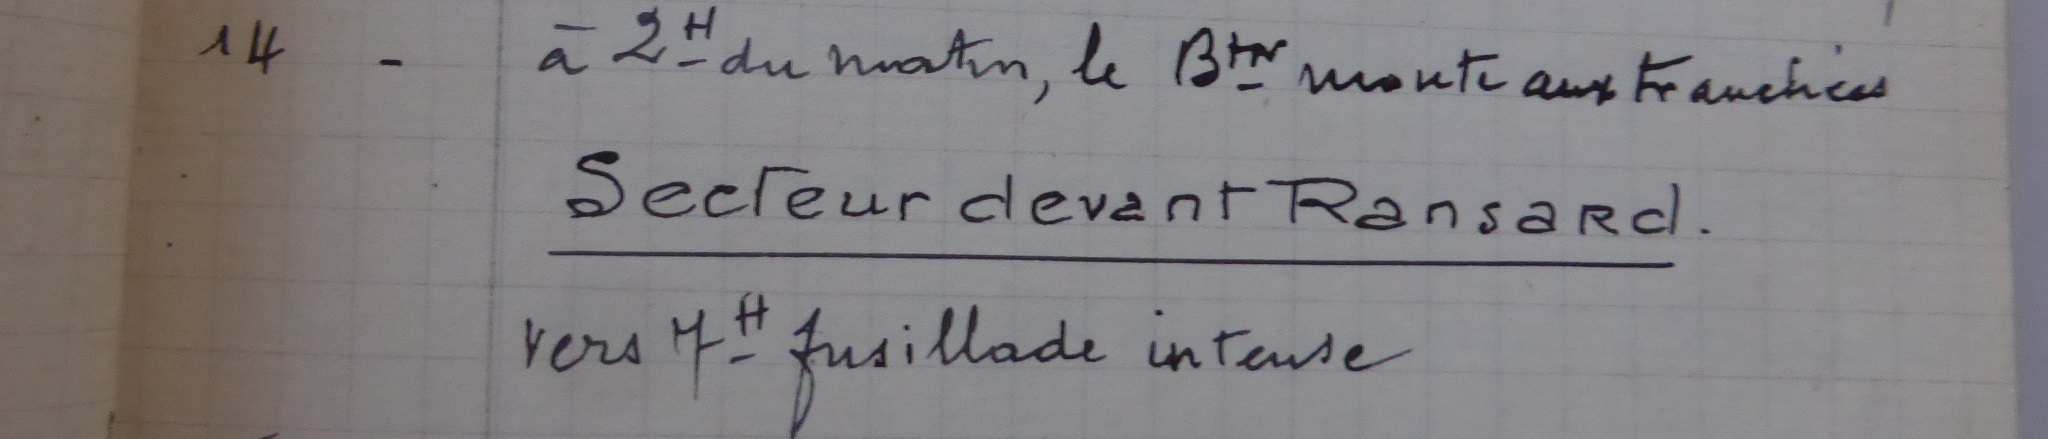 14 - à 2H du matin, le Btn monte aux tranchées
Secteur devant Ransard.
vers 7H fusillade intense